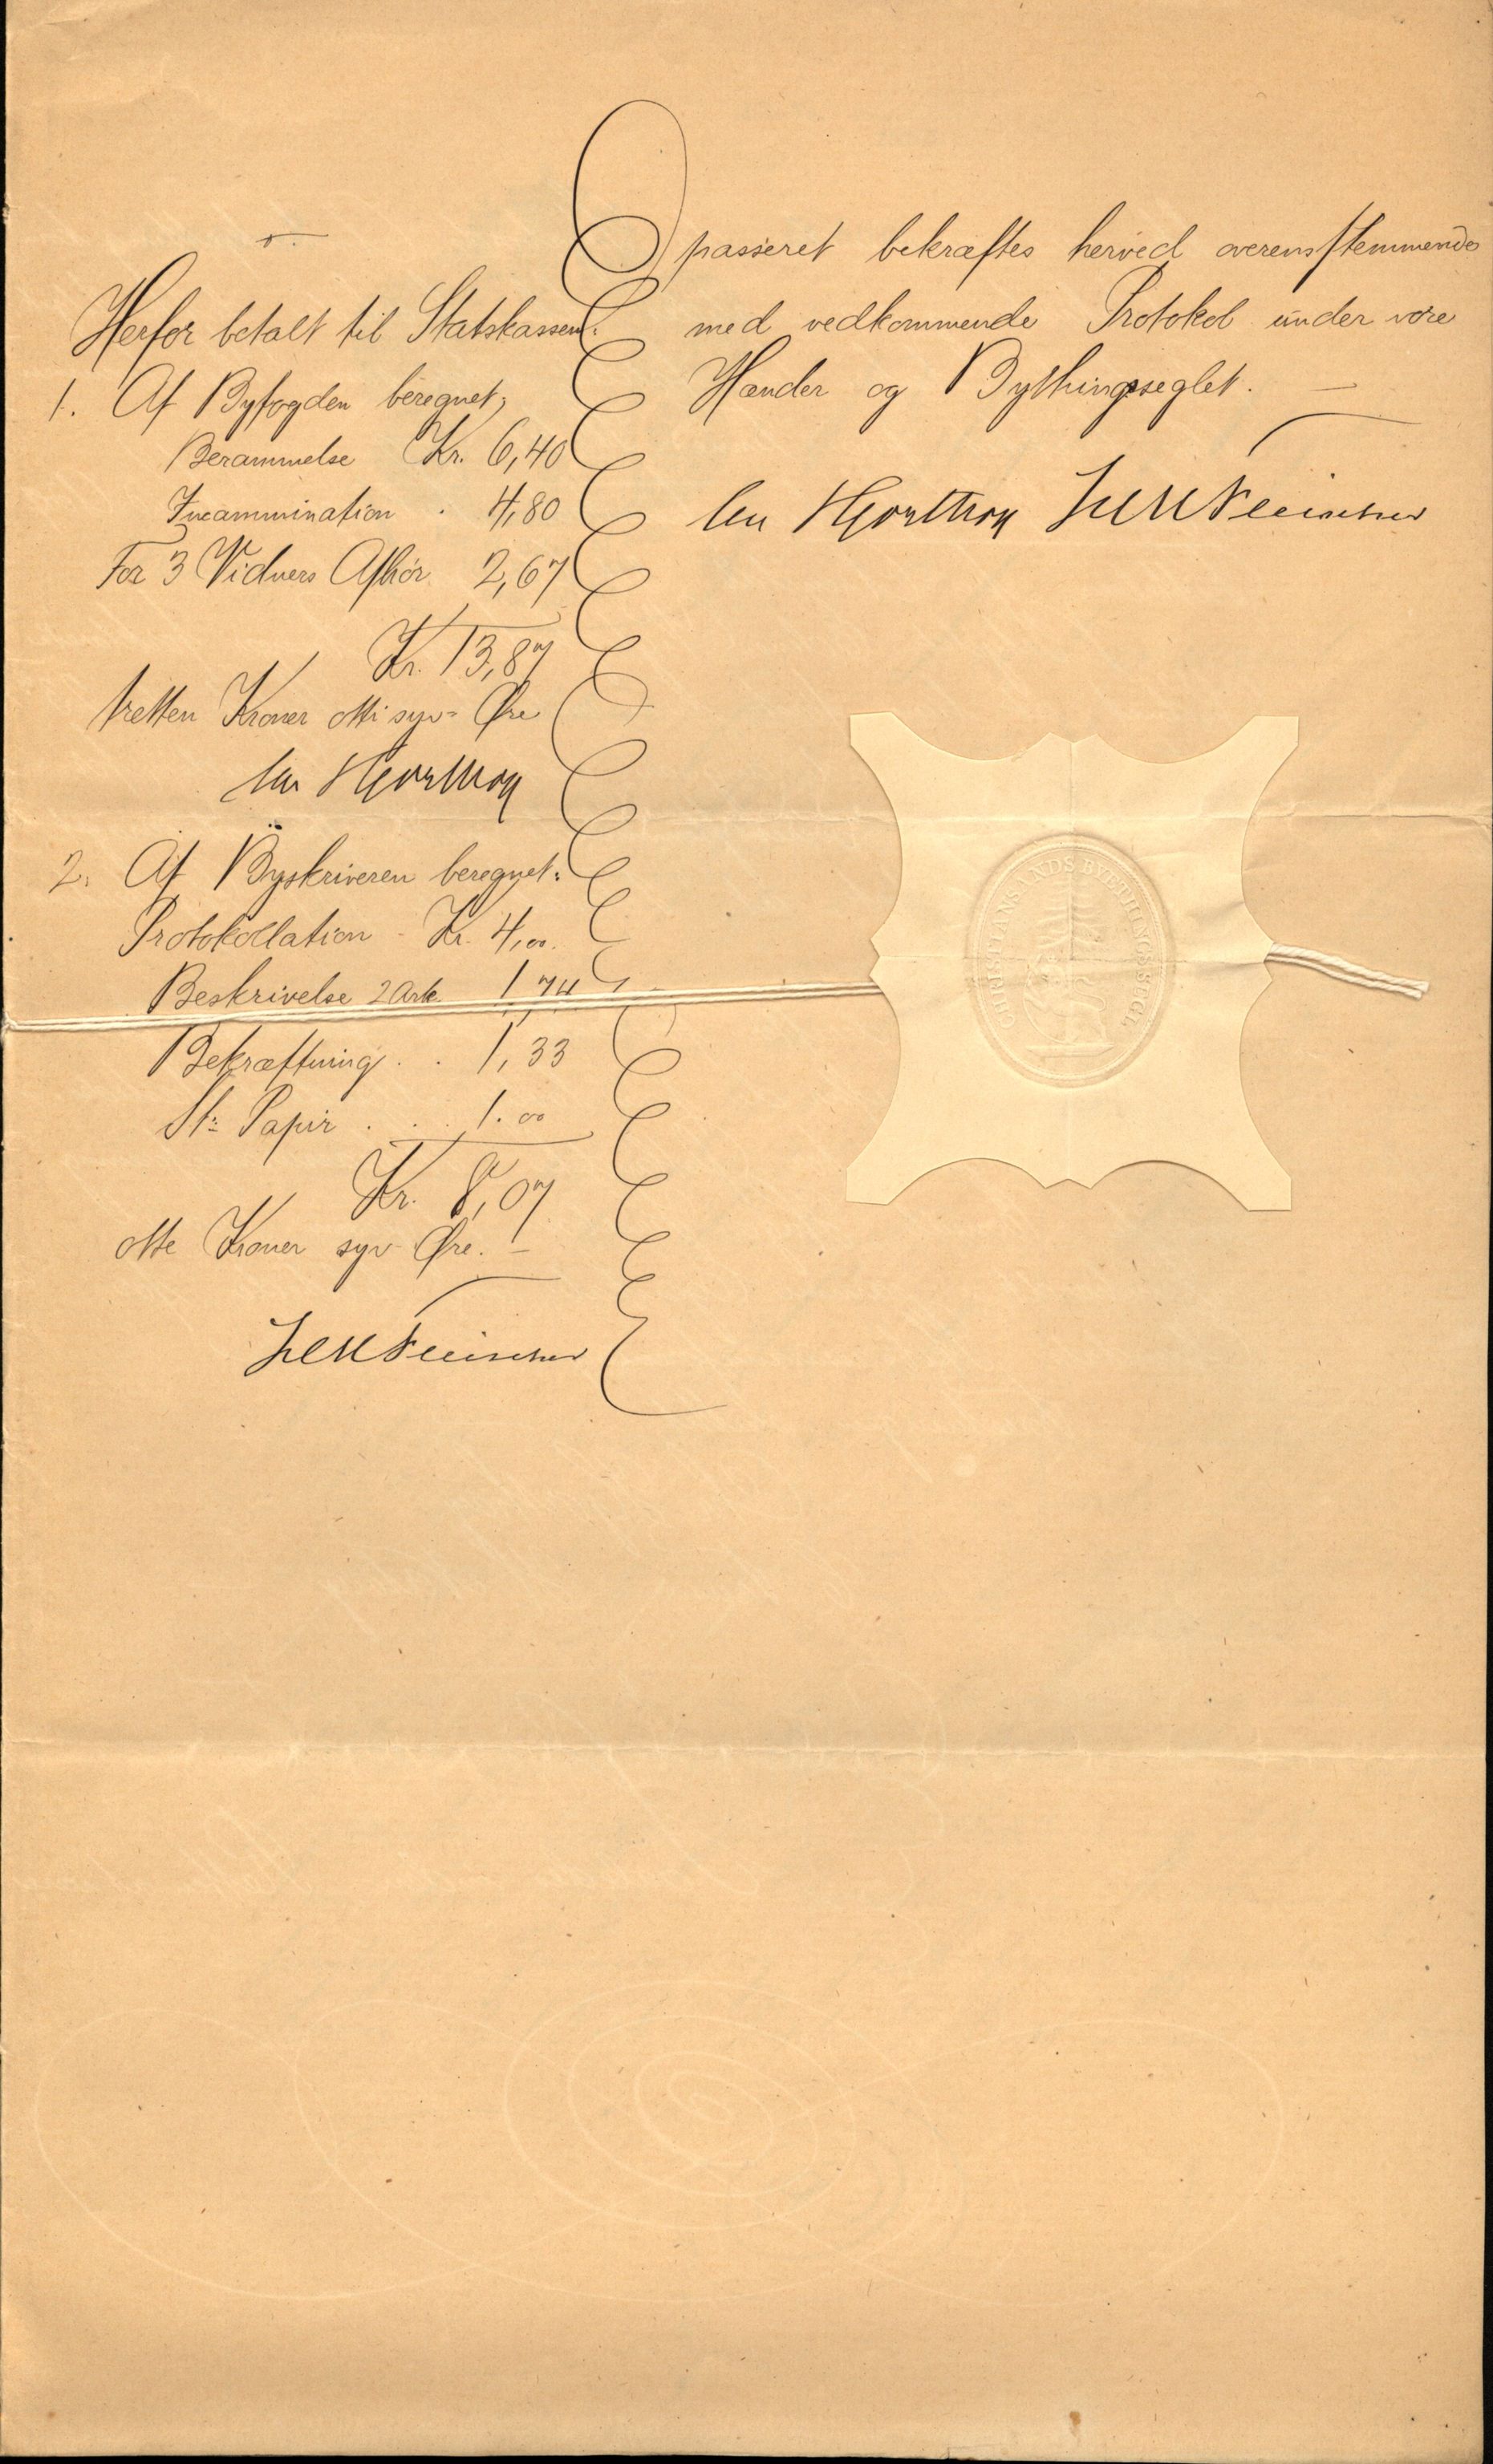 Herfor betalt til Statskassen:
1. Af Byfogden beregnet;
Berammelse Kr. 6,40
Incammination . 4,80
For 3 Vidners Afhør. 2,67
Kr. 13,87
tretten Kroner otti syv Øre
Hjorthoy
2. Af Byskriveren beregnet:
Protokollation - Kr. 4,00.
Beskrivelse 2 Ark. 1,74
Bekræftning . . 1,33
St: Papir . . . 1.00
Kr. 8,07
otte Kroner syv Øre. -
Fleischer
passeret bekræftes herved overensstemmende
med vedkommende Protokol under vore
Hænder og Bythingsseglet. -
Hjorthoy Fleischer
CHRISTIANSSANDS BYETHINGS SEGL